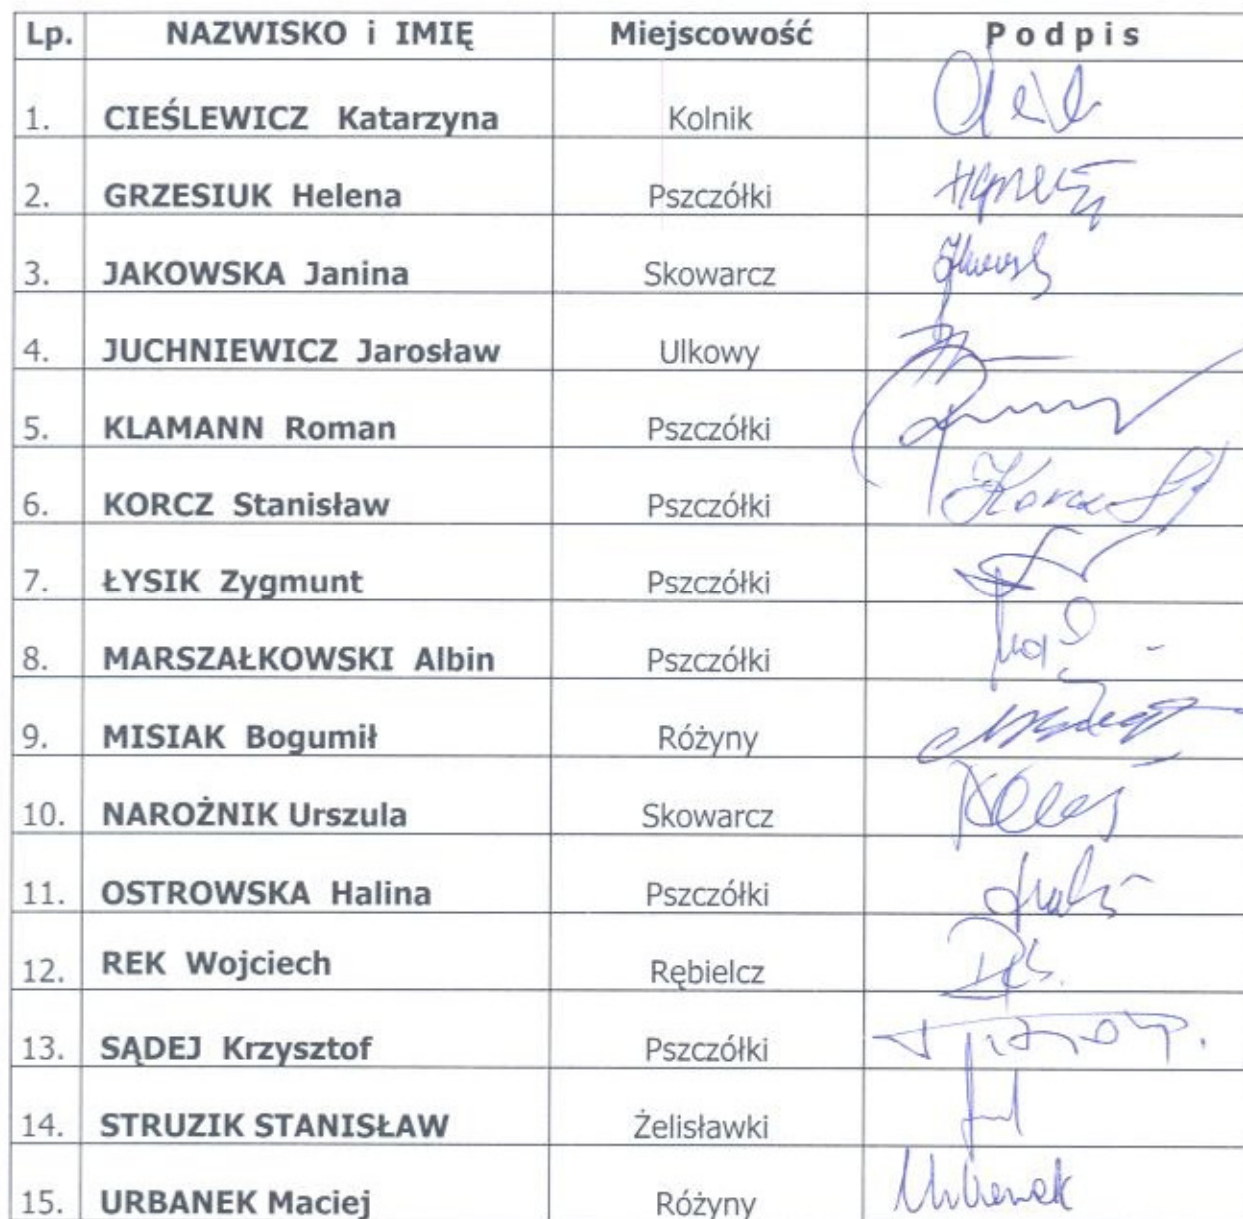 Lp. NAZWISKO i IMIĘ Miejscowość Podpis
1. CIEŚLEWICZ Katarzyna Kolnik
2. GRZESIUK Helena Pszczółki
3. JAKOWSKA Janina Skowarcz
4. JUCHNIEWICZ Jarosław Ulkowy
5. KLAMANN Roman Pszczółki
6. KORCZ Stanisław Pszczółki Korcz St
7. ŁYSIK Zygmunt Pszczółki
8. MARSZAŁKOWSKI Albin Pszczółki
9. MISIAK Bogumił Różyny
10. NAROŻNIK Urszula Skowarcz
11. OSTROWSKA Halina Pszczółki
12. REK Wojciech Rębielcz
13. SĄDEJ Krzysztof Pszczółki
14. STRUZIK STANISŁAW Żelisławki
15. URBANEK Maciej Różyny Urbanek